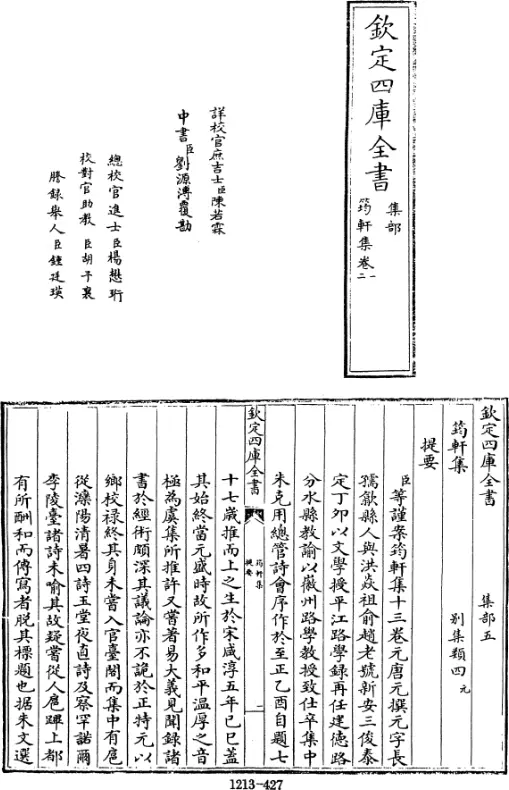 欽定四庫全書
集部
筠軒集卷一
二
詳校官庶吉士臣陳若霖
中書臣劉源溥覆勘
總校官進士臣楊懋珩
校對官助教臣胡予襄
謄錄舉人臣鍾廷瑛
欽定四庫全書
集部五
筠軒集
別集類四元
提要
臣等謹案筠軒集十三卷元唐元撰元字長
孺歙縣人與洪焱祖俞趙老號新安三俊泰
定丁夘以文學授平江路學録再任建德路
分水縣教諭以徽州路學教授致仕卒集中
朱克用總管詩會序作於至正乙酉自題七
欽定四庫全書
筠軒集
提要
一
十七歲推而上之生於宋咸淳五年己巳蓋
其始終當元盛時故所作多和平温厚之音
極為虞集所推許又嘗著易大義見聞錄諸
書於經術頗深其議論亦不詭於正特元以
鄉校禄終其身未嘗入官臺閣而集中有扈
從灤陽清暑四詩玉堂夜直詩及察罕諾爾
李陵臺諸詩未喻其故疑嘗從人扈蹕上都
有所酬和而傳寫者脱其標題也据朱文選
1213-427